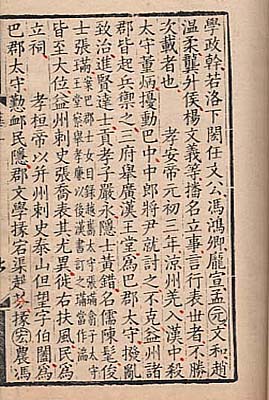 學政幹若洛下閎任文公馮鴻卿龐宣孟元文和趙
溫柔龔升侯楊文義等播名立事言行表世者不勝
次載者也　孝安帝元初三年涼州羌入漢中殺
太守董炳擾動巴中中郎將尹就討之不克益州諸
郡皆起兵禦之三府舉廣漢王堂爲巴郡太守撥亂
致治進賢達士貢孝子嚴永隱士黃錯名儒陳髦俊
士張璊案巴郡士女目録越嶲太守張璊翕子太守
王堂察舉孝廉以後漢書訂之璊當作湍
皆至大位益州刺史張喬表其尤異徙右扶風民爲
立祠　孝桓帝以并州刺史泰山但望字伯闓爲
巴郡太守懃邺民隱郡文學掾宕渠趙芬掾宏農馮